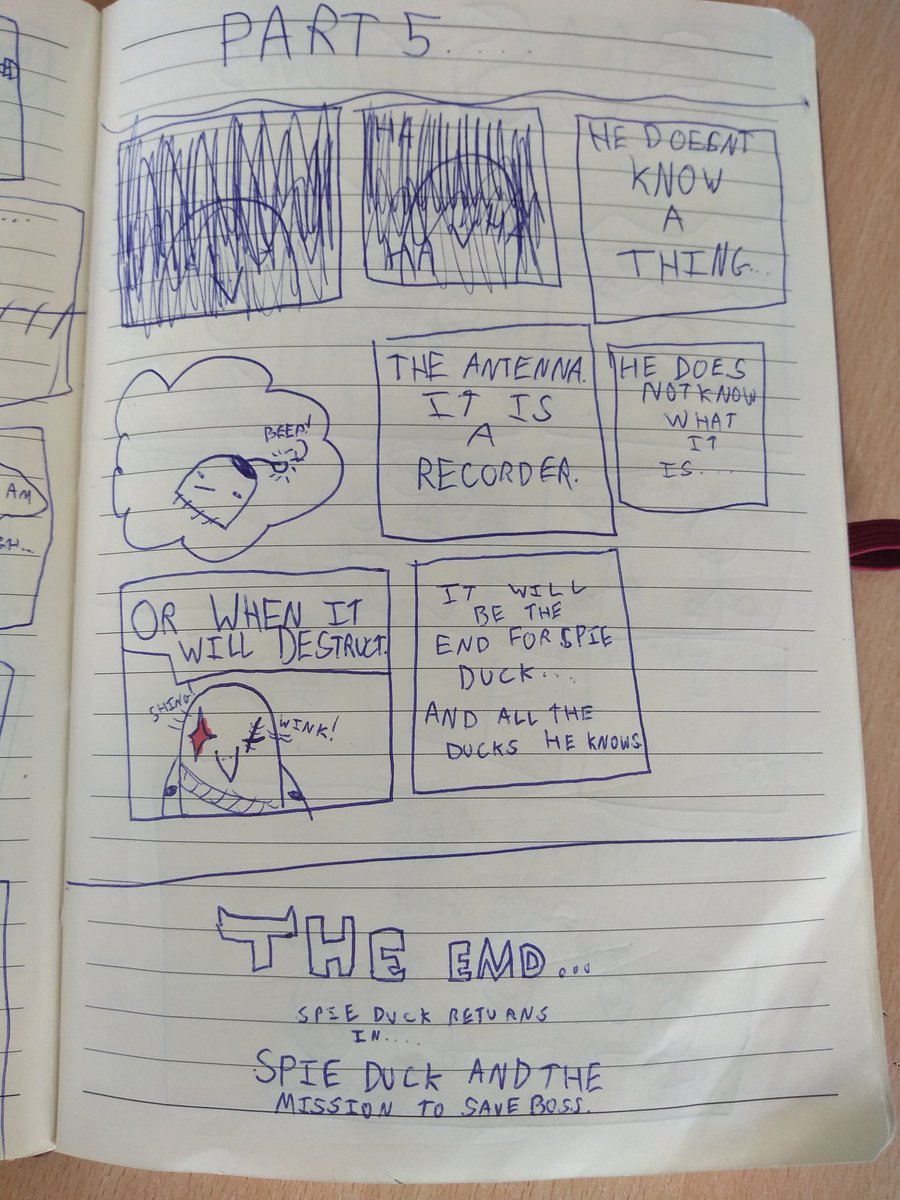 PART 5.....
HA
HA
HE DOESNT
KNOW
A
THING...
BEEP!
THE ANTENNA.
IT IS
A
RECORDER.
HE DOES
NOT KNOW
WHAT
IT
IS....
OR WHEN IT
WILL DESTRUCT.
SHING!
WINK!
IT WILL
BE THE
END FOR SPIE
DUCK...
AND ALL THE
DUCKS HE KNOWS
THE END...
SPIE DUCK RETURNS
IN....
SPIE DUCK AND THE
MISSION TO SAVE BOSS.
AM